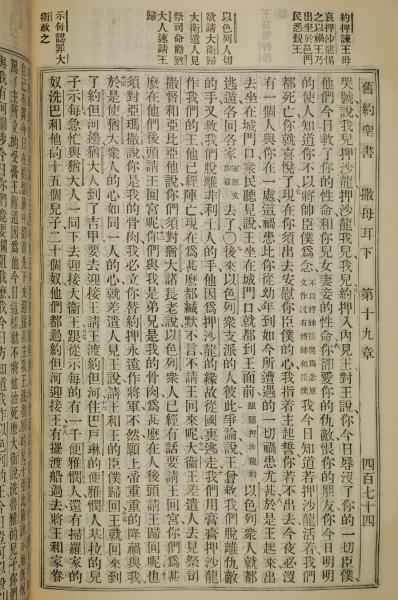 約押諫王毋
哀押沙龍惕
之以禍王乃
出坐於邑門
民悉覲王
以色列人切
欲請大衛歸
大衛遣人見
祭司命勸猶
大人速請王
歸
示每認罪大
衛赦之
舊約聖書 撒母耳下 第十九章 四百七十四
哭號說我兒押沙龍押沙龍我兒我兒約押入內見王對王說你今日辱沒了你的一切臣僕
他們今日救了你的性命和你兒女妻妾的性命你卻愛你的仇敵恨你的朋友你今日明明
的使人知道你不以將帥臣僕爲念不以將帥臣僕爲念原文作沒有將帥和臣僕我今日知道若押沙龍活着我們
都死亡你就喜悅了現在你須出去安慰你臣僕的心我指着主起誓你若不出去今夜必沒
有一個人與你在一處這禍患比你從幼年到如今所遭遇的一切禍患尤甚於是王起來出
去坐在城門口衆民聽見說王坐在城門口就都到王面前跟隨押沙龍的以色列人就都
逃遁各回各家家原文作幕去了○後來以色列衆支派的人彼此爭論說王曾救我們脫離仇敵
的手又救我們脫離非利士人的手他因爲押沙龍的緣故從國裏逃走我們用膏膏押沙龍
作我們的王他已經陣亡現在爲甚麽都緘默不言不請王回來呢大衛王差遣人去見祭司
撒督和亞比亞他說你們須對猶大諸長老說以色列衆人已經有話要請王回宮你們爲甚
麽在他們後頭請王回宮呢你們與我是弟兄是我的骨肉爲甚麽在人後頭請王歸回呢也
須對亞瑪撒說你是我的骨肉我必立你替約押永遠作將軍不然願上帝重重的降禍與我
於是使猶大衆人的心如同一人的心就差遣人見王說請王和王的臣僕歸回王就回來到
了約但河邊猶大人到了吉甲要去迎接王請王渡約但河住巴戶琳的便雅憫人基拉的兒
子示每急忙與猶大人一同下去迎接大衛王跟從示每的有一千便雅憫人還有掃羅家的
奴洗巴和他的十五個兒子二十個奴他們都過約但河迎接王有擺渡船過去將王和家眷